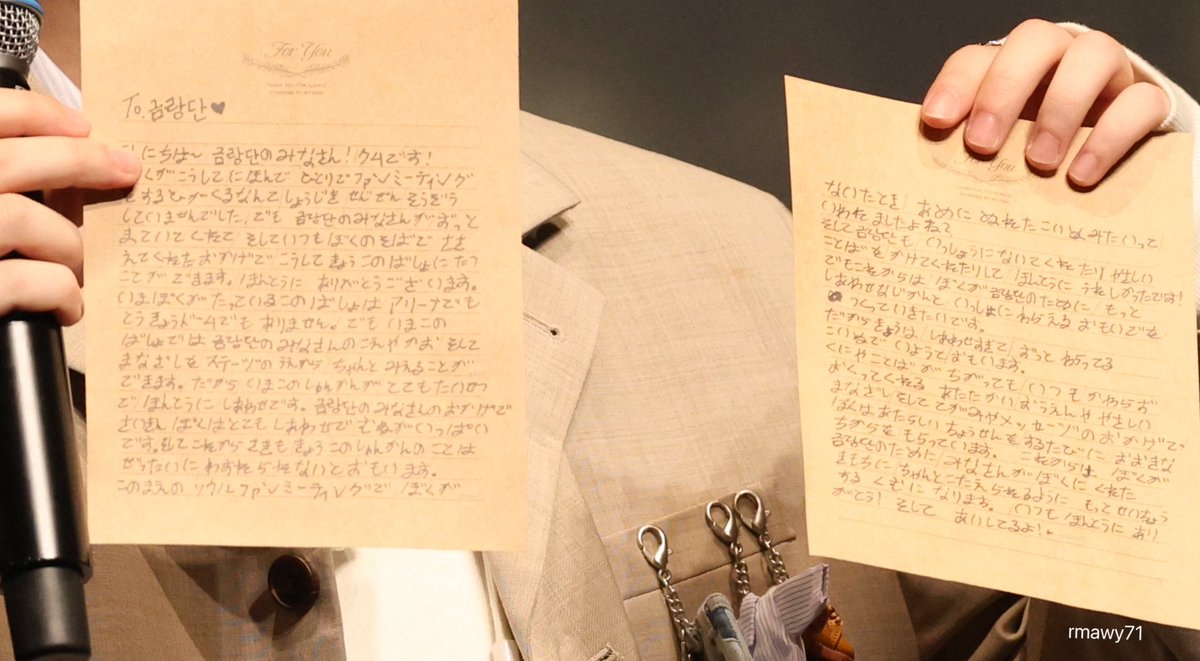 For You
THANK YOU FOR ALWAYS
To. 금랑단♥
にちは〜 금랑단のみなさん!クムです!
くがこうしてにほんで ひとりでファンミーティング
をするひがくるなんてしょうじき ぜんぜん そうぞう
していませんでした。でも 금랑단のみなさんがずっと
まっていてくれて そしていつもぼくのそばで ささ
えてくれたおかげで こうしてきょうこのばしょにたつ
ことができます。ほんとうに ありがとうございます。
いまぼくがたっているこのばしょは アリーナでも
とうきょうドームでも ありません。でも いまこの
ばしょでは 금랑단のみなさんのこえやかお そして
まなざしを ステージのうえから ちゃんとみえることが
できます。だから いまこのしゅんかんが とてもたいせつ
で ほんとうに しあわせです。금랑단のみなさんのおかげで
さいきん ぼくはとても しあわせで むねがいっぱい
です。そしてこれからさきも きょうこのしゅんかんのことは
ぜったいに わすれられないとおもいます。
このまえの ソウルファンミーティングで ぼくが
For You
ないたとき あめに ぬれたこいぬみたいって
いわれましたよねㅋㅋ
そして금랑단も いっしょうにないてくれたり やさしい
ことばをかけてくれたりして ほんとうに うれしかったです!
でもこれからは ぼくが금랑단のために もっと
しあわせなじかんと いっしょにわらえる おもいでを
つくっていきたいです。
だからきょうは しあわせすぎて ずっと わらってる
こいぬで いようとおもいます。
くにやことばが ちがっても いつもかわらず
おくってくれる あたたかい おうえんや やさしい
まなざしをして てがみやメッセージのおかげで
ぼくはあたらしい ちょうせんをするたびに おおきな
ちからを もらっています。 これからは ぼくが
금랑단のために みなさんがぼくに くれた
きもちに ちゃんとこたえられるように もっとせいちょう
する くむに なります。 いつも ほんとうに あり
がとう! そして あいしてるよ!
rmawy71